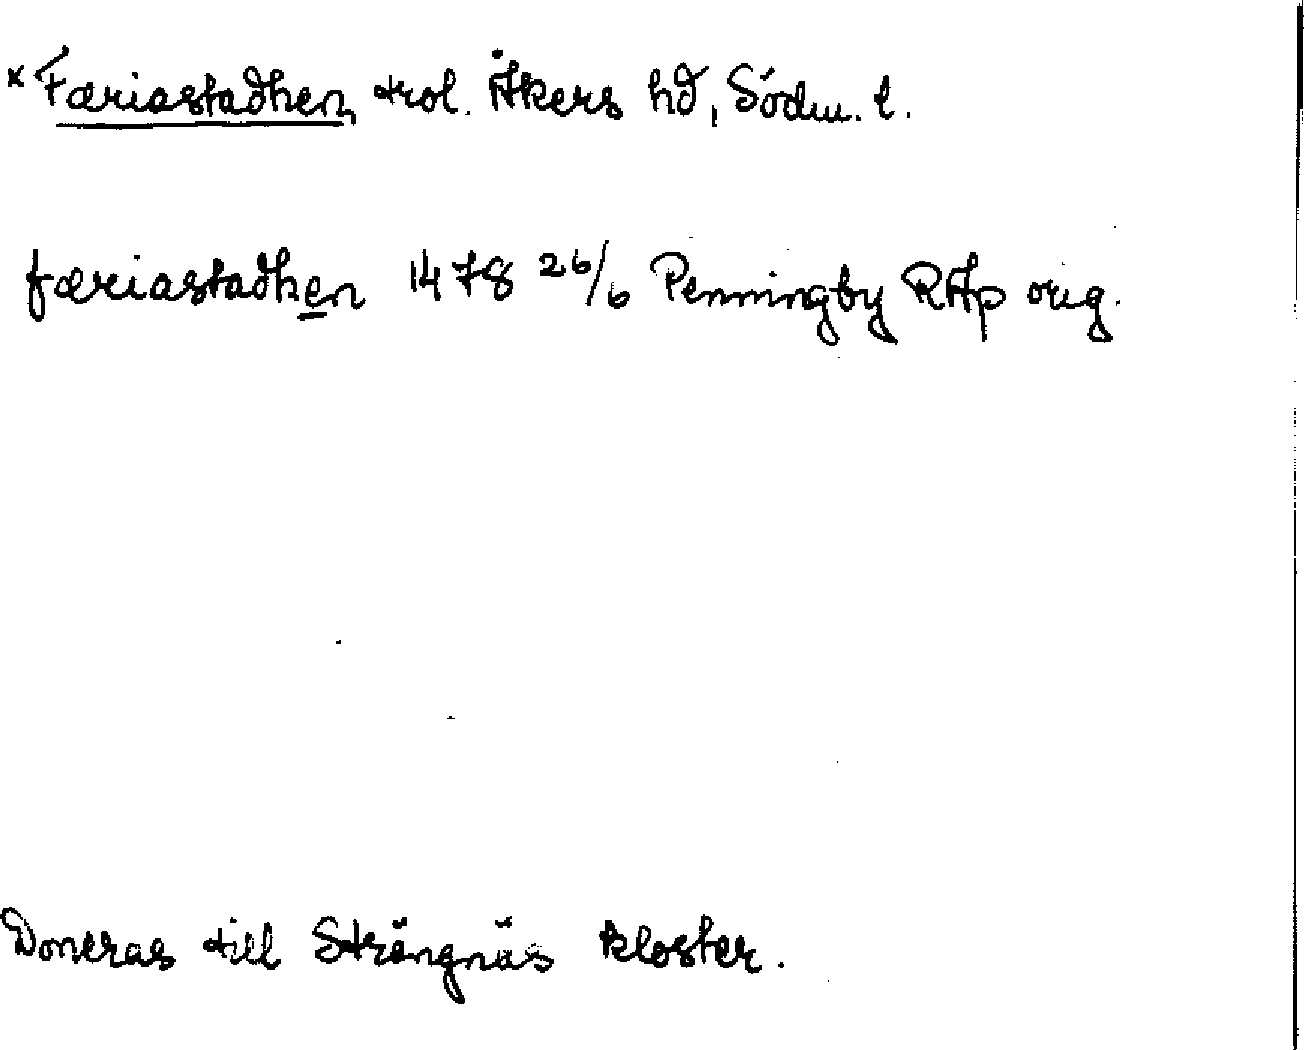 *Færiastadhen, trol. Åkers hd, Södm. l.
færiastadhen 1478 26/6 Penningby RAp orig.
Doneras till Strängnäs kloster.